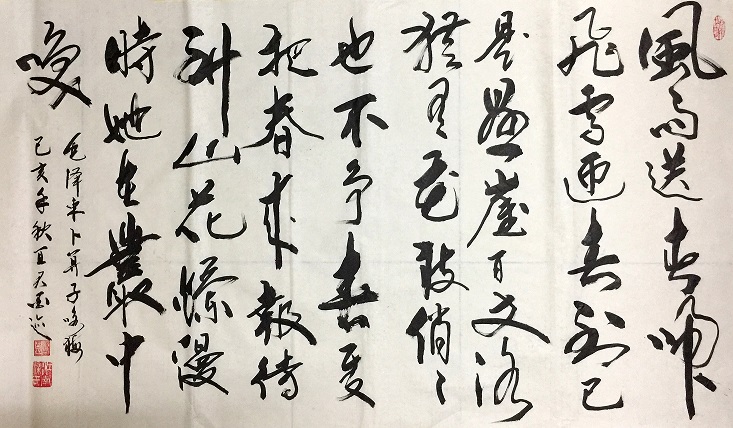 風雨送春歸
飛雪迎春到已
是懸崖百丈冰
猶有花枝俏〻
也不爭春只
把春來報待
到山花爛漫
時她在叢中
笑
毛泽东卜算子咏梅
己亥年秋墨迹